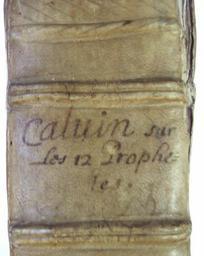 Caluin sur
les 12 Prophe=
tes.